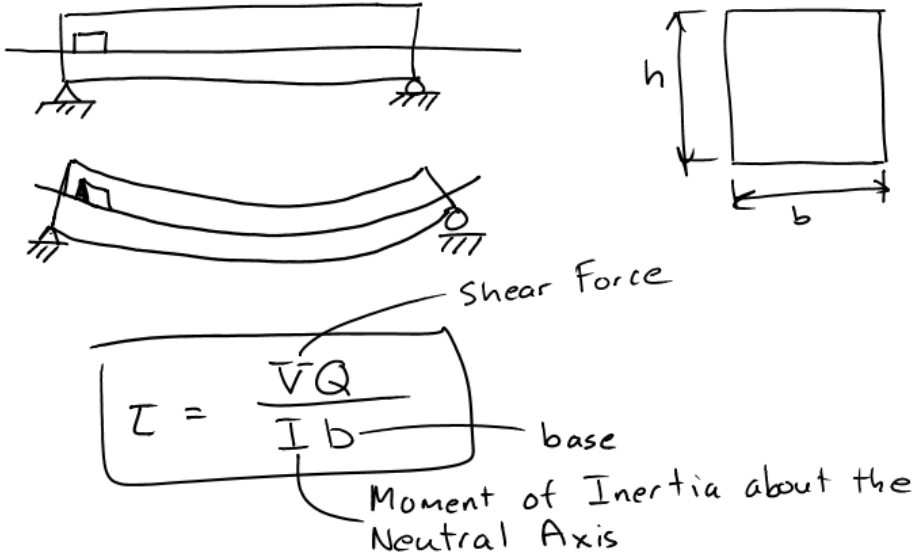 h
b
Shear Force
τ = VQ / Ib
base
Moment of Inertia about the
Neutral Axis